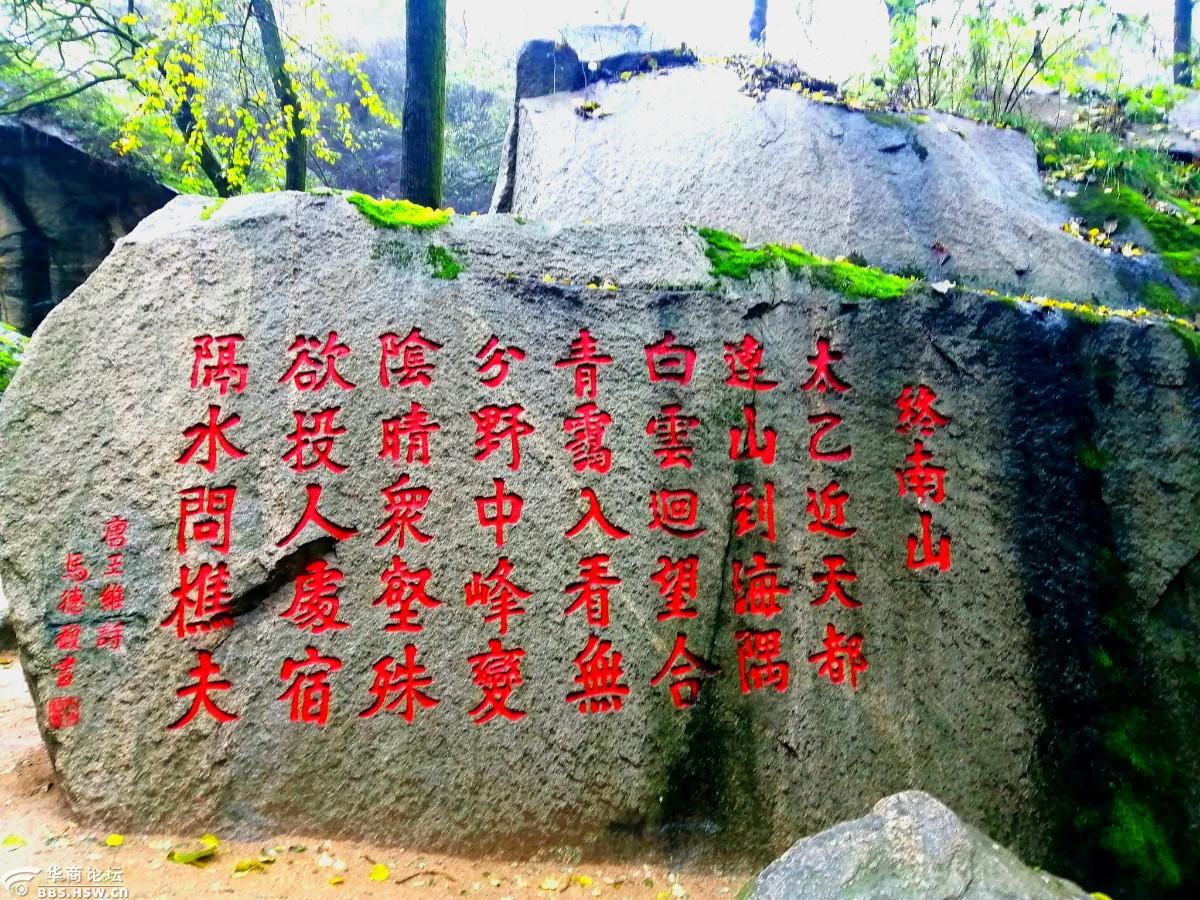 終南山
太乙近天都
連山到海隅
白雲迴望合
青靄入看無
分野中峰變
陰晴衆壑殊
欲投人處宿
隔水問樵夫
唐王維詩
馬德書
华商论坛
BBS.HSW.CN